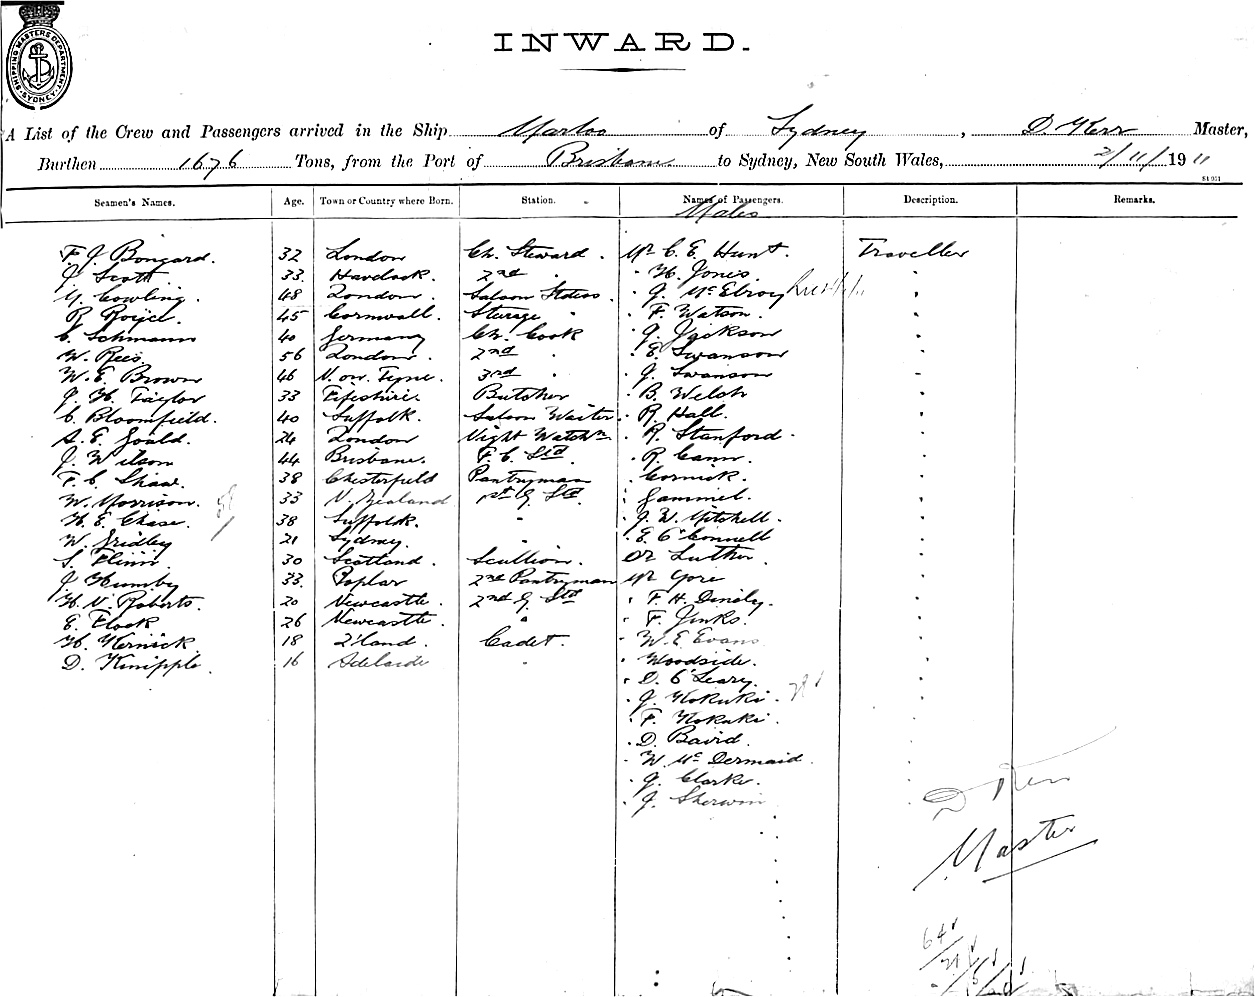 SHIPPING MASTERS DEPARTMENT SYDNEY
INWARD.
A List of the Crew and Passengers arrived in the Ship Marloo of Sydney, D. Kerr Master,
Burthen 1676 Tons, from the Port of Brisbane to Sydney, New South Wales, 2/11/1911
S1 951
Seamen's Names. Age. Town or Country where Born. Station. Names of Passengers. Description. Remarks.
Males
F. J. Bongard. 32 London Ch. Steward. Mr C. E. Hunt. Traveller
J. Scott 33. Havelock. 2nd " " H. Jones. "
Cowling. 48 London. Saloon " J. McElroy "
R. Royce. 45 Cornwall. Sterage " " F. Watson. "
C. Schmann 40 Germany Ch. Cook " J. Jackson "
W. Rees. 56 London. 2nd " " E. Swanson "
W. E. Brown 46 N. on. Tyne. 3rd " " J. Swanson "
J. H. Taylor 33 Fifeshire. Butcher " B. Welch "
C. Bloomfield. 40 Suffolk. Saloon Waiter " R. Hall. "
A. E. Gould. 24 London Night Watchn " R. Stanford. "
J. Wilson 44 Brisbane. F. C. Std. " R. Cann. "
F. C. Shaw. 38 Chesterfield Pantryman " Cormick. "
W. Morrison. 33 N. Zealand 1st G. Std. " Gammel. "
H. E. Chase. 38 Suffolk. " " J. W. Mitchell. "
W. Gridley 21 Sydney. " " E. O'Connell "
S. Flinn 30 Scotland. Scullion. Dr Luther. "
J. Humby 33. Poplar 2nd Pantryman Mr Gore "
H. V. Roberts. 20 Newcastle. 2nd G. Std " F. H. "
E. Flock 26 Newcastle. " " F. Jinks. "
H. Kernick. 18 Z'land. Cadet. " W. E. Evans "
D. Kinipple. 16 Adelaide " " Woodside. "
" D. O'Leary. "
" J. Kokuki. "
" F. Kokuki. "
" D. Baird. "
" W. McDermaid. "
" J. Clarke. "
" J. Sherwin "
D Kerr
Master
64